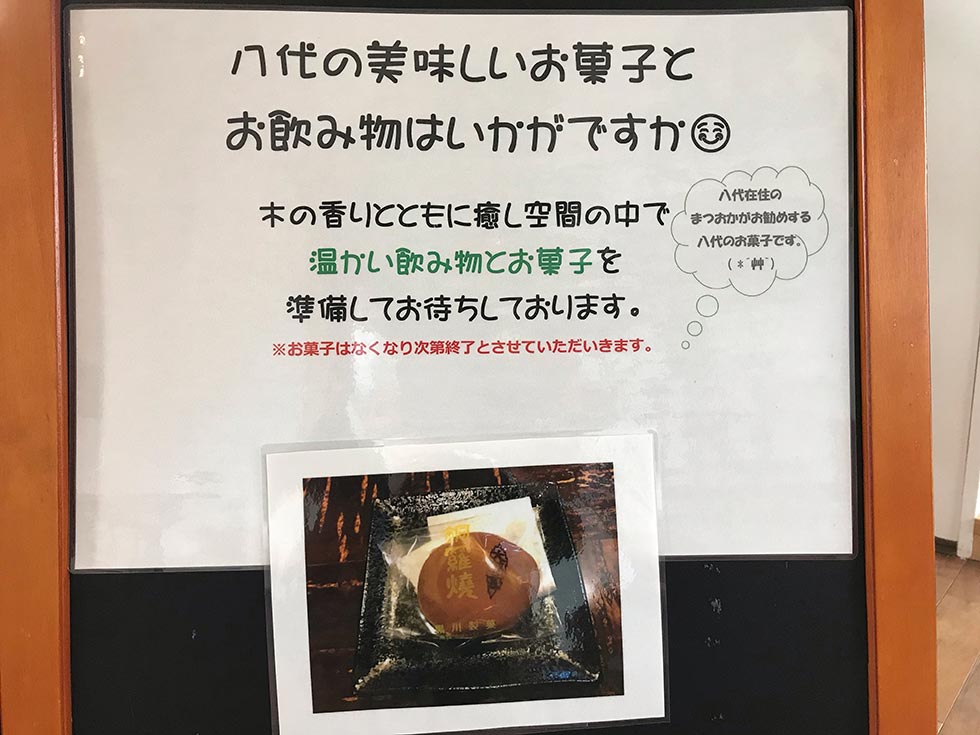 八代の美味しいお菓子と
お飲み物はいかがですか😊
木の香りとともに癒し空間の中で
温かい飲み物とお菓子を
準備してお待ちしております。
※お菓子はなくなり次第終了とさせていただいきます。
八代在住の
まつおかがお勧めする
八代のお菓子です。
(*´艸`)
銅羅燒
川製菓